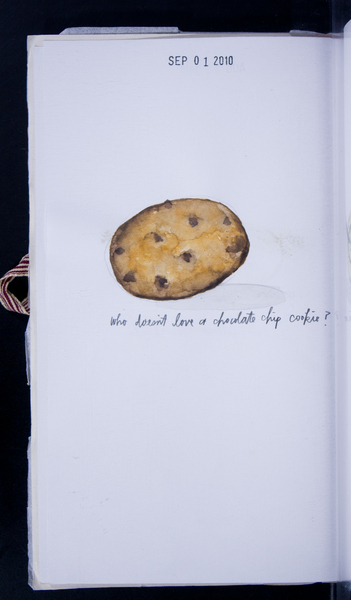 SEP 01 2010
Who doesn't love a chocolate chip cookie?